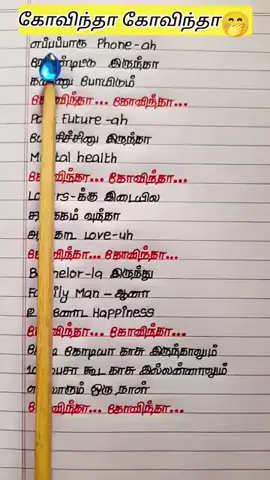 கோவிந்தா கோவிந்தா🤭
எப்பப்பாரு Phone-ah
இருந்தா
போயிடும்
கோவிந்தா... கோவிந்தா...
Future-ah
இருந்தா
Mental health
கோவிந்தா... கோவிந்தா...
Lovers-க்கு இடையில
வந்தா
Love-uh
கோவிந்தா... கோவிந்தா...
Bachelor-la இருந்து
Family Man - ஆனா
Happiness
கோவிந்தா... கோவிந்தா...
கோடி கோடியா காசு இருந்தாலும்
கூட காசு இல்லன்னாலும்
ஒரு நாள்
கோவிந்தா... கோவிந்தா...